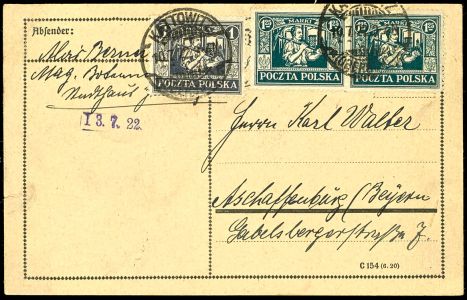 Absender:
KATOWICE
1
POCZTA POLSKA
1.25 MARKI
POCZTA POLSKA
1.25 MARKI
POCZTA POLSKA
13. 7. 22.
Herrn Karl Walter
Aschaffenburg (Bayern
Gabelsbergerstraße 7.
C 154 (6. 20)